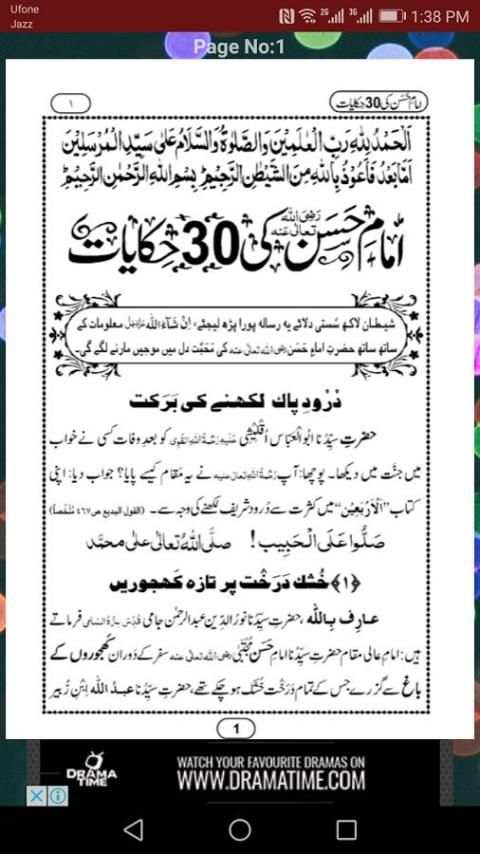 Ufone
Jazz
2G
3G
1:38 PM
Page No:1
امام حَسَن کی 30 حکایات
۱
اَلْحَمْدُ لِلّٰہِ رَبِّ الْعٰلَمِیْنَ وَالصَّلٰوۃُ وَالسَّلَامُ عَلٰی سَیِّدِ الْمُرْسَلِیْنَ
اَمَّا بَعْدُ فَاَعُوْذُ بِاللّٰہِ مِنَ الشَّیْطٰنِ الرَّجِیْمِ بِسْمِ اللّٰہِ الرَّحْمٰنِ الرَّحِیْمِ
امامِ حَسَن رَضِیَ اللّٰہُ تَعَالٰی عَنْہُ کی 30 حِکایات
شیطان لاکھ سُستی دلائے یہ رسالہ پورا پڑھ لیجئے، اِنْ شَآءَ اللّٰہ عَزَّوَجَلَّ معلومات کے
ساتھ ساتھ حضرتِ امامِ حَسَن رضی اللہ تعالٰی عنہ کی مَحَبَّت دل میں موجیں مارنے لگے گی۔
دُرُودِ پاک لکھنے کی بَرَکت
حضرتِ سیِّدُنا ابوالعبّاس اُقْلِیْشِی عَلَیْہِ رَحْمَۃُ اللّٰہِ الْقَوِی کو بعدِ وفات کسی نے خواب
میں جنّت میں دیکھا۔ پوچھا: آپ رَحْمَۃُ اللّٰہِ تعالٰی علیہ نے یہ مقام کیسے پایا؟ جواب دیا: اپنی
کتاب ”اَلْاَرْبَعِیْن“ میں کثرت سے دُرود شریف لکھنے کی وجہ سے۔ (القول البدیع ص۴۶۷ مُلَخَّصاً)
صَلُّوا عَلَی الْحَبِیْب! صلَّی اللّٰہُ تعالٰی علٰی محمَّد
﴿۱﴾ خُشک دَرَخْت پر تازہ کَھجوریں
عارِف بِاللّٰہ، حضرتِ سیِّدُنا نورُالدّین عبدالرحمٰن جامی قُدِّسَ سِرُّہُ السّامی فرماتے
ہیں: امامِ عالی مقام حضرتِ سیِّدُنا امامِ حَسَن مُجْتَبٰی رضی اللہ تعالٰی عنہ سفر کے دَوران کَھجوروں کے
باغ سے گزرے جس کے تمام دَرَخْت خُشک ہو چکے تھے، حضرتِ سیِّدُنا عبدُ اللّٰہ اِبْنِ زُبیر
1
DRAMA
TIME
WATCH YOUR FAVOURITE DRAMAS ON
WWW.DRAMATIME.COM